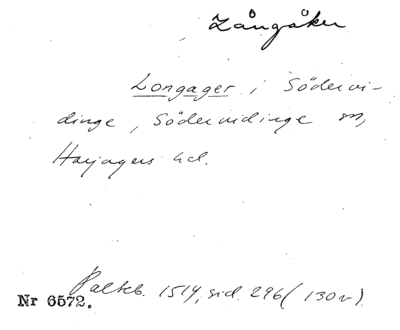 Långåker
Longager i Södervi-
dinge, Södervidinge sn,
Harjagers hd.
Palteb. 1514, sid. 296 (130 v).
Nr 6572.